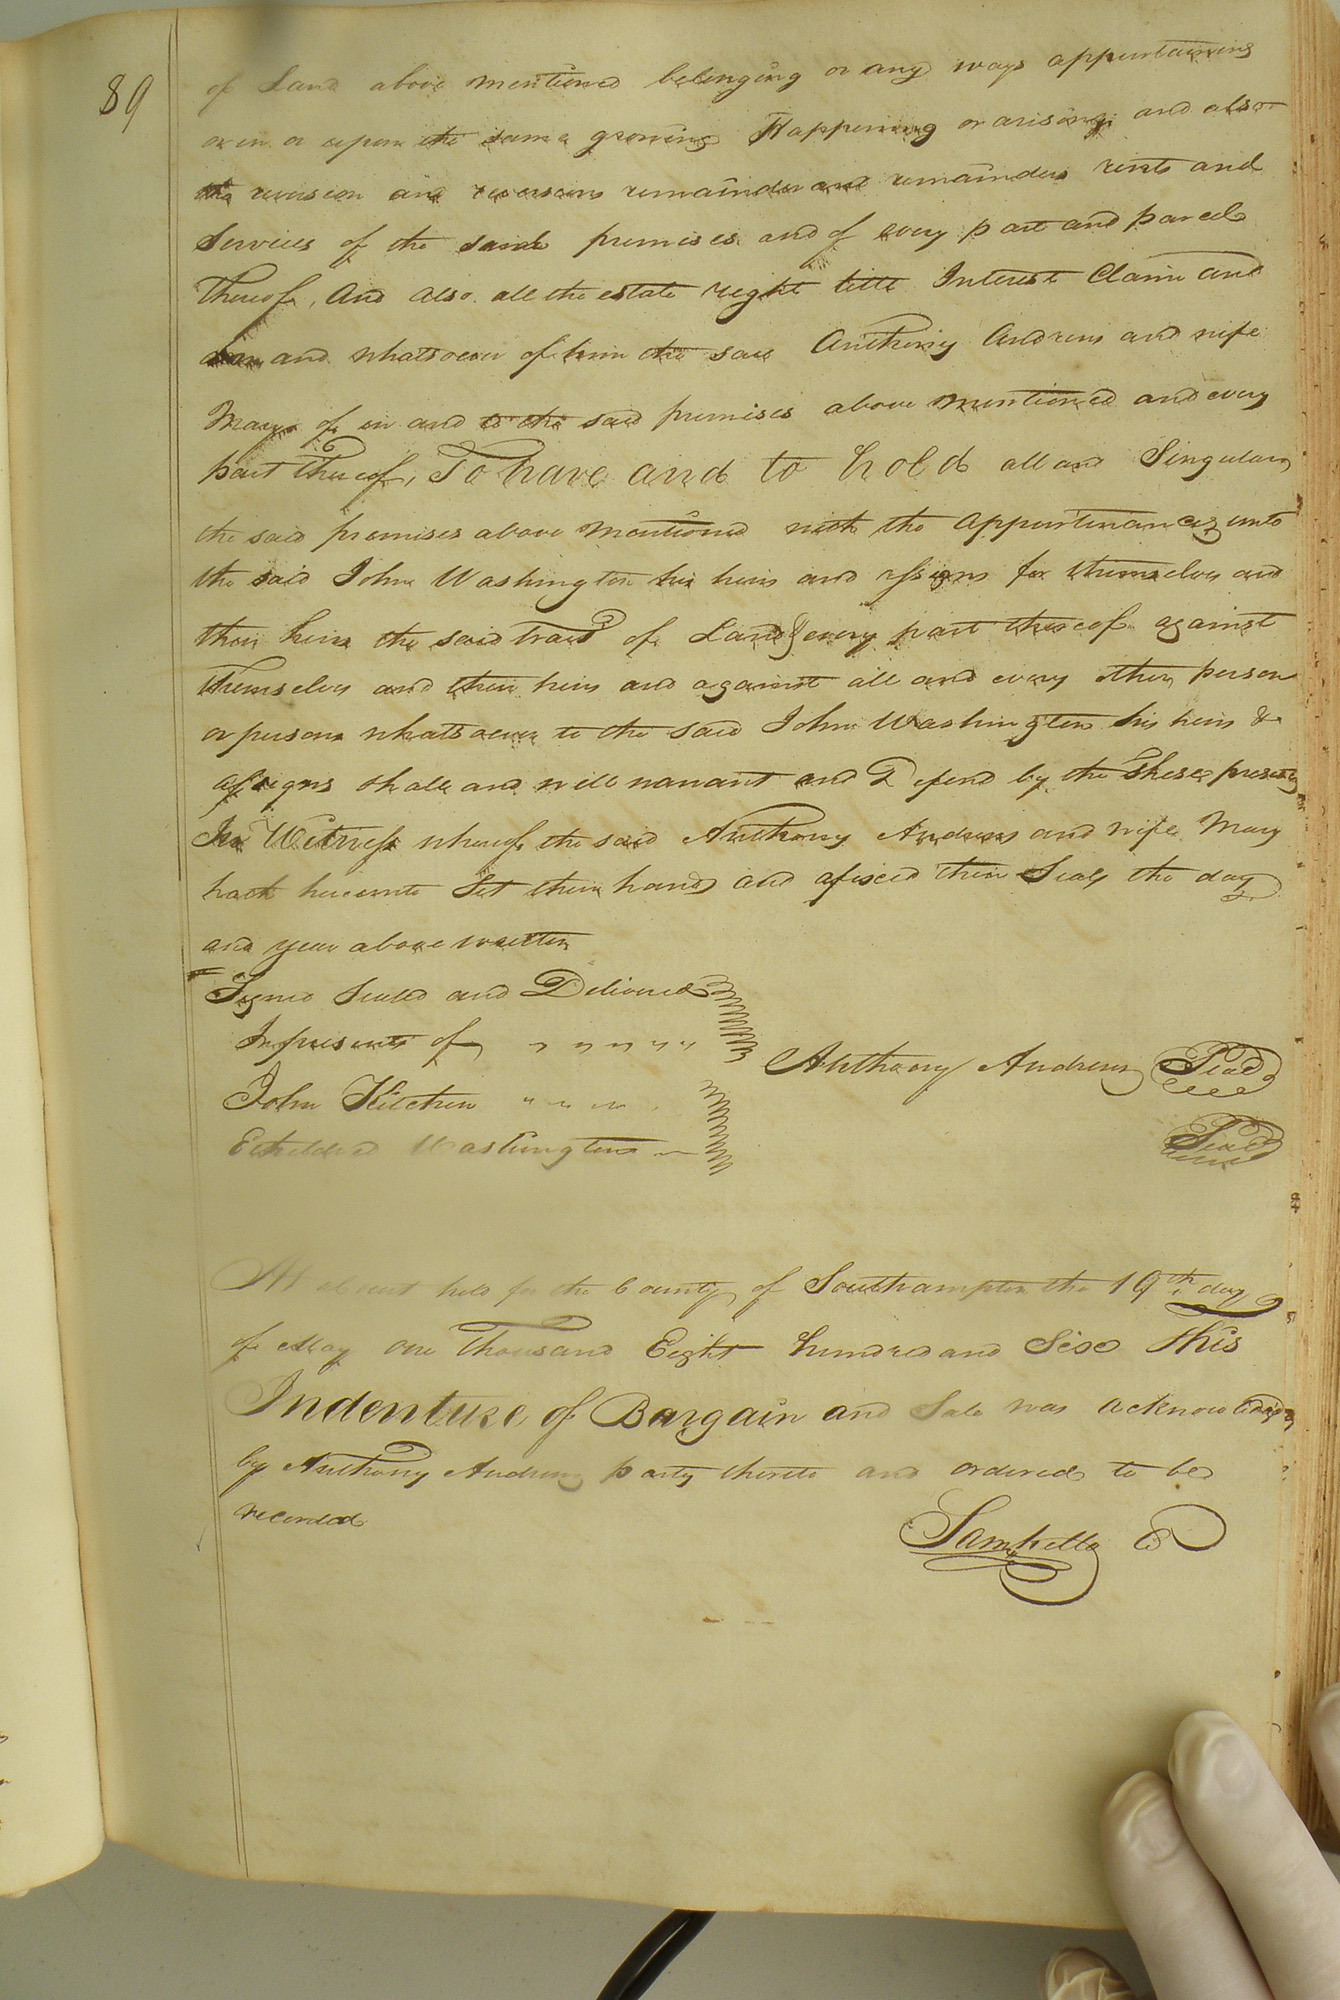 89
of Land above mentioned belonging or any ways appurtaining
or in or upon the same growing Happening or arising and also
the revision and reversions remainder and remainders rents and
Services of the same premises and of every part and parcel
thereof, And also all the estate right title Interest Claim and
and whatsoever of him the said Anthony Andrews and wife
Mary of in and to the said premises above mentioned and every
part thereof, To have and to hold all and Singular
the said premises above mentioned with the appurtenances unto
the said John Washington his heirs and assigns for themselves and
their heirs the said tract of Land & every part thereof against
themselves and their heirs and against all and every other person
or persons whatsoever to the said John Washington his heirs &
assigns shall and will warrant and Defend by the These presents
In Witness whereof the said Anthony Andrews and wife Mary
hath hereunto Set their hands and afixed their Seals the day
and year above written
Signed Sealed and Delivered
In presents of
Anthony Andrews Seal
John Kitchen
Etheldred Washington
Seal
At a Court held for the County of Southampton the 19th day
of May one Thousand Eight hundred and Six This
Indenture of Bargain and Sale was acknowledged
by Anthony Andrews party thereto and ordered to be
recorded
Sam Kello